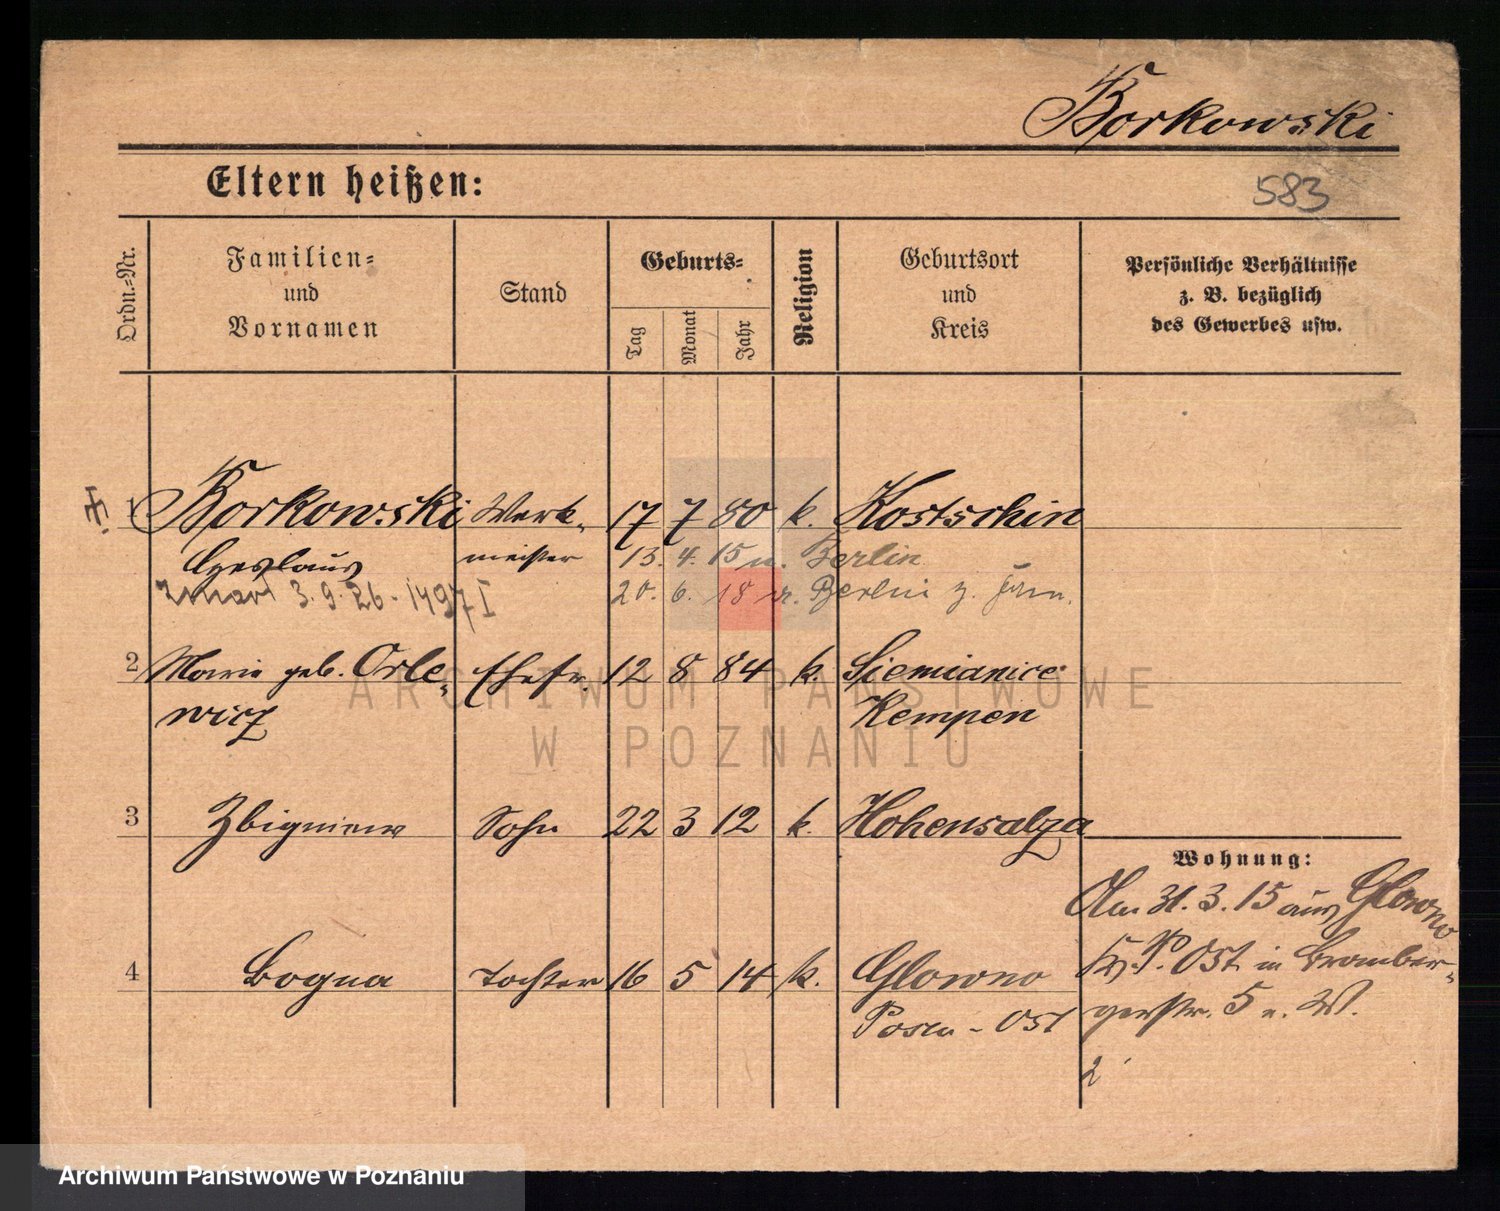 Borkowski
583
Eltern heißen:
Ordn.-Nr.
Familien-
und
Vornamen
Stand
Geburts-
Tag
Monat
Jahr
Religion
Geburtsort
und
Kreis
Persönliche Verhältnisse
z. B. bezüglich
des Gewerbes usw.
1 Borkowski Werk- 17 7 80 k. Kostschin
Czeslaus meister 13. 4. 15 n. Berlin
zmarł 3.9.26 - 1497 I 20. 6. 18 v. Berlin z.
2 Marie geb. Orle- Ehefr. 12 8 84 k. Siemianice
wicz Kempen
3 Zbigniew Sohn 22 3 12 k. Hohensalza
Wohnung:
Am 31.3.15 aus Glowno
4 Bogna Tochter 16 5 14 k. Glowno
Kr. P. Ost in Bromber-
Posen-Ost
gerstr. 5 n. W.
2
ARCHIWUM PAŃSTWOWE
W POZNANIU
Archiwum Państwowe w Poznaniu